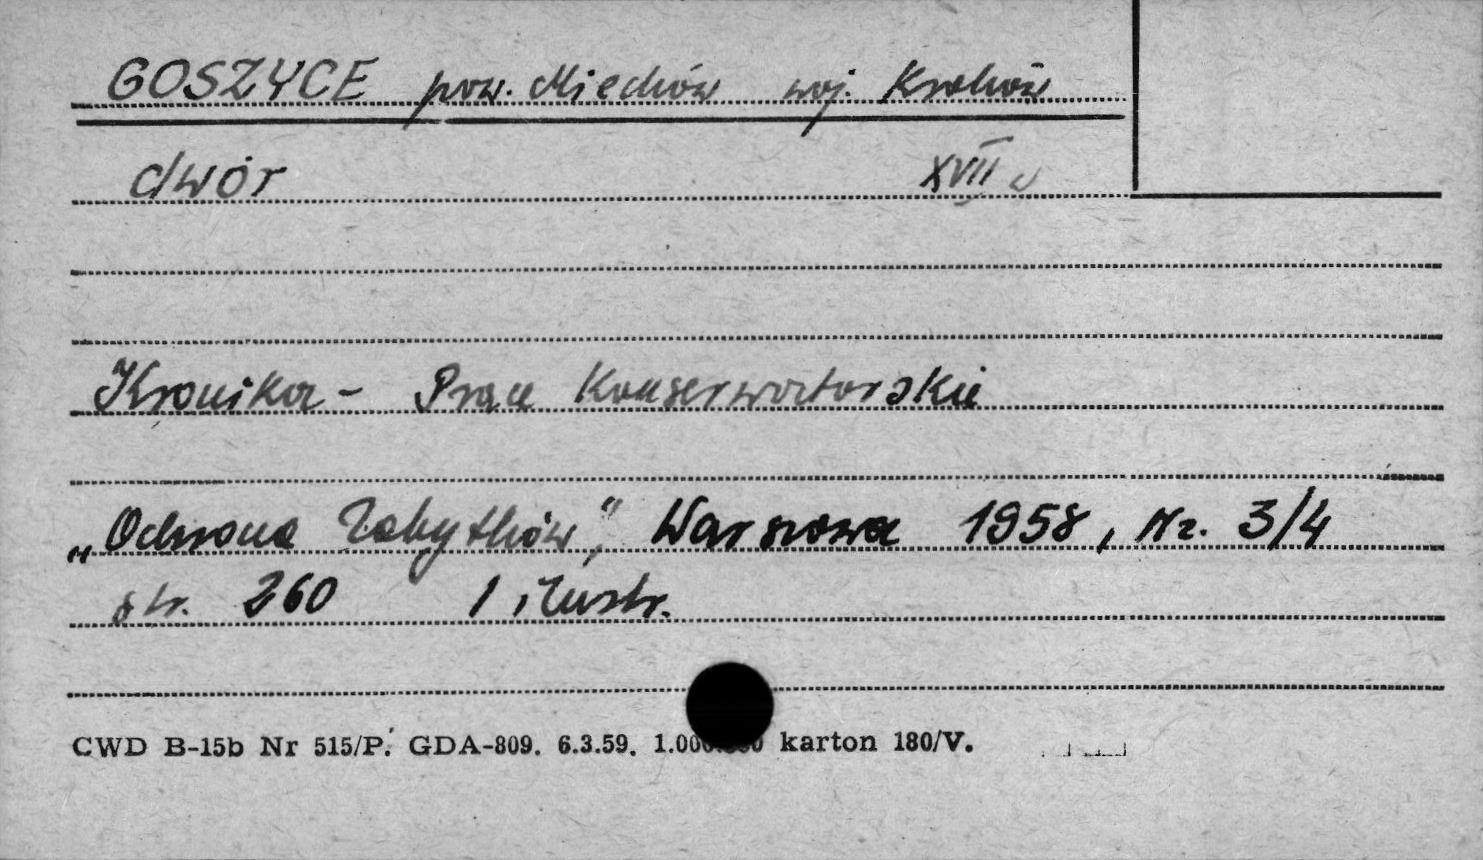 GOSZYCE pow. Miechów woj. Kraków
dwór XVII w
Kronika - Prace Konserwatorskie
„Ochrona Zabytków", Warszawa 1958, Nr. 3/4
str. 260 1 ilustr.
CWD B-15b Nr 515/P. GDA-809. 6.3.59. karton 180/V.